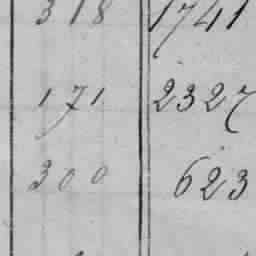 318 1741
171 2327
300 623